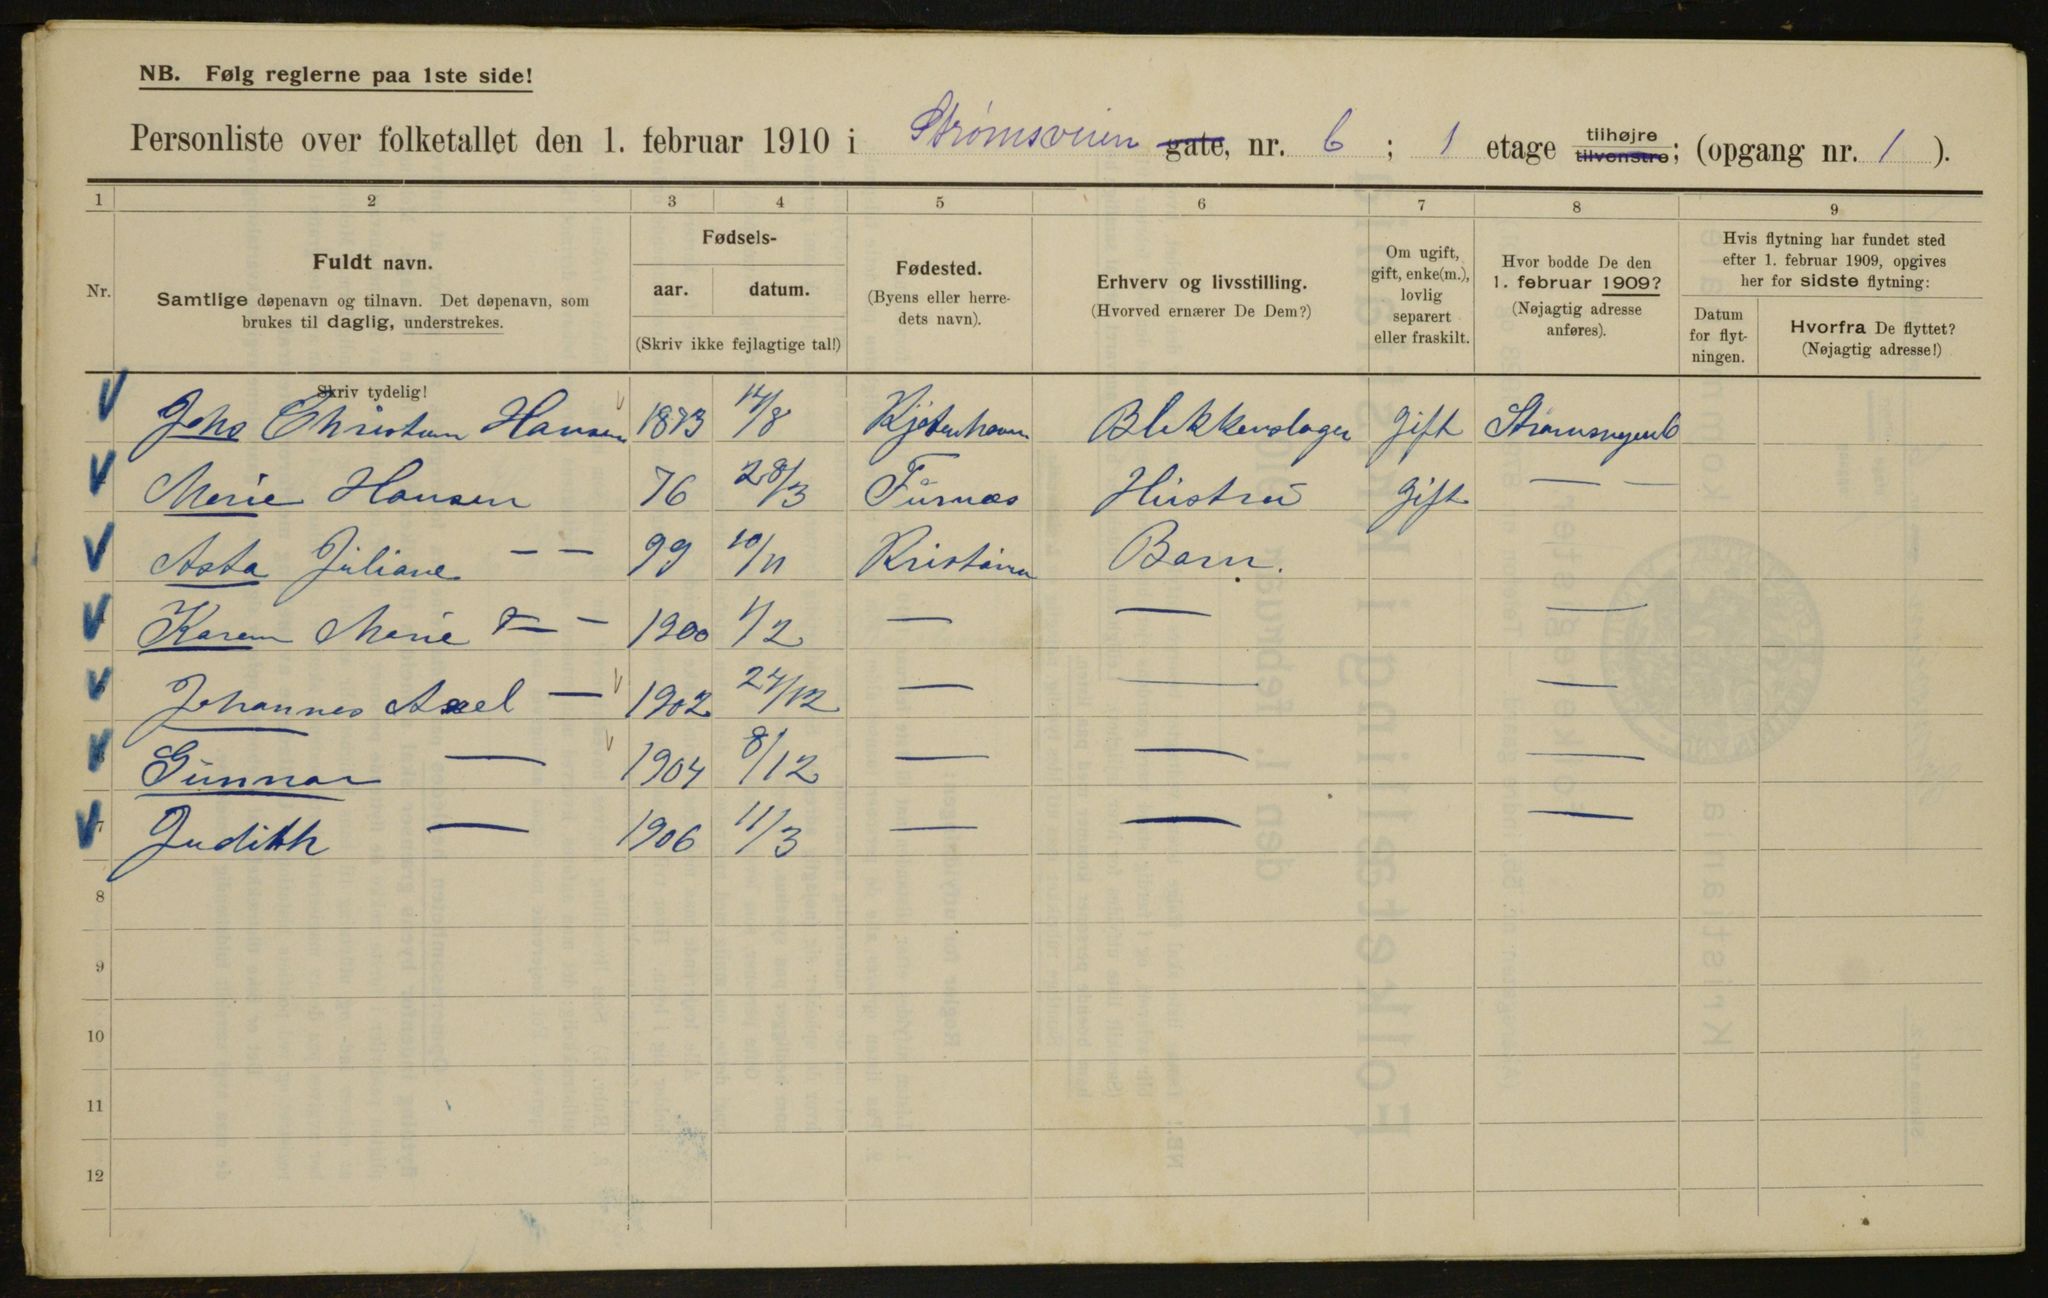 NB. Følg reglerne paa 1ste side!
Personliste over folketallet den 1. februar 1910 i Strømsveien gate, nr. 6 ; 1 etage tilhøjre tilvenstre; (opgang nr. 1 ).
1 2 3 4 5 6 7 8 9
Nr.
Fuldt navn.
Samtlige døpenavn og tilnavn. Det døpenavn, som
brukes til daglig, understrekes.
Fødsels-
aar. datum.
(Skriv ikke fejlagtige tal!)
Fødested.
(Byens eller herre-
dets navn).
Erhverv og livsstilling.
(Hvorved ernærer De Dem?)
Om ugift,
gift, enke(m.),
lovlig
separert
eller fraskilt.
Hvor bodde De den
1. februar 1909?
(Nøjagtig adresse
anføres).
Hvis flytning har fundet sted
efter 1. februar 1909, opgives
her for sidste flytning:
Datum
for flyt-
ningen.
Hvorfra De flyttet?
(Nøjagtig adresse!)
Skriv tydelig!
Johs Christian Hansen 1873 /8 Kjøbenhavn Blikkenslager gift Strømsvejen 6
Marie Hansen 76 28/3 Furnæs Hustru gift — —
Asta Juliane — — 99 10/11 Kristiania Barn.
4 Karen Marie — — 1900 1/2 — — —
5 Johannes Axel — 1902 27/12 — — —
6 Gunnar — 1904 8/12 — — —
7 Judith — 1906 11/3 — — —
8
9
10
11
12